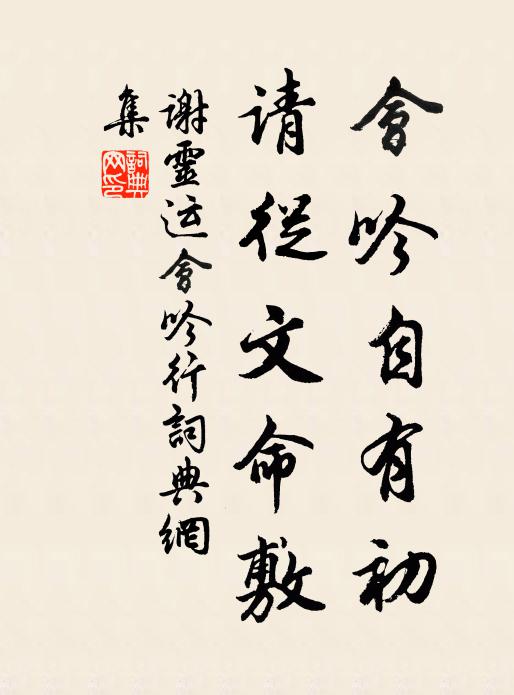 會吟自有初
请從文命敷
谢靈运會吟行詞典網
集
詞典網印